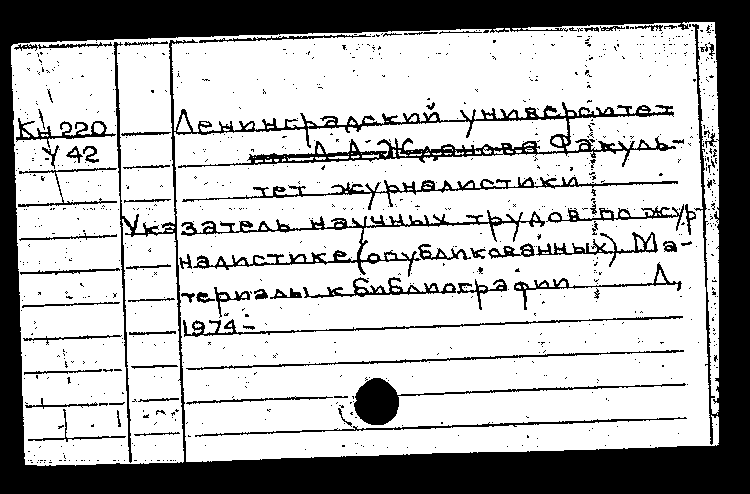 Кн 220
У 42
Ленинградский университет
им. А.А. Жданова Факуль-
тет журналистики
Указатель научных трудов по жур-
налистике (опубликованных). Ма-
териалы к библиографии Л.,
1974-